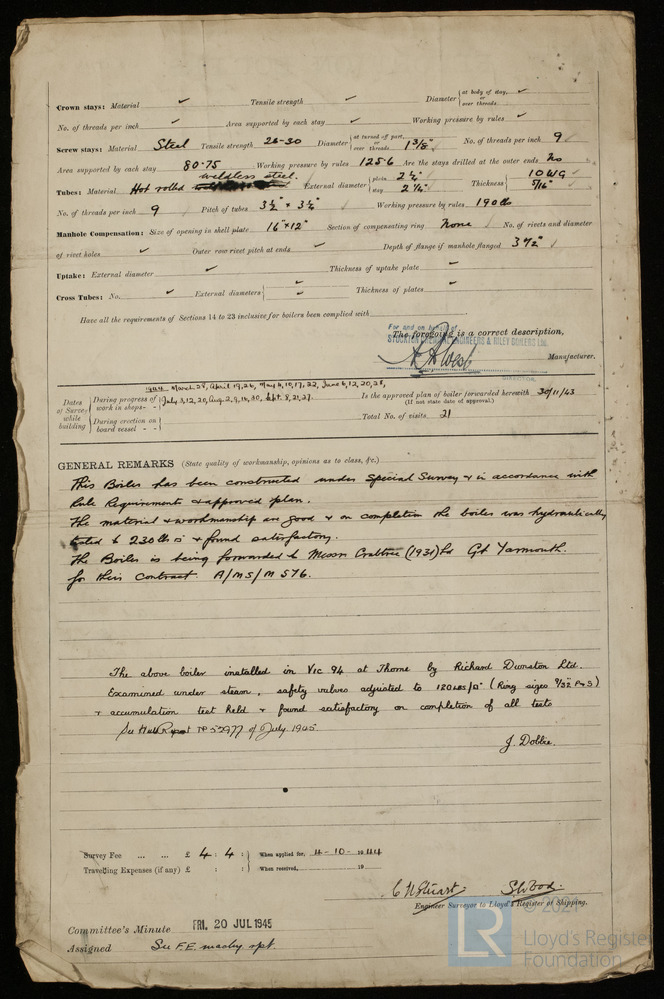 Crown stays: Material ✓ Tensile strength ✓ Diameter { at body of stay, or over threads ✓
No. of threads per inch ✓ Area supported by each stay ✓ Working pressure by rules ✓
Screw stays: Material Steel Tensile strength 26-30 Diameter { at turned off part, or over threads 1 3/8" No. of threads per inch 9
Area supported by each stay 80.75 Working pressure by rules 125.6 Are the stays drilled at the outer ends No
Tubes: Material Hot rolled weldless steel. External diameter { plain 2 1/4" stay 2 1/4" Thickness { 10 WG 5/16"
No. of threads per inch 9 Pitch of tubes 3 1/2" × 3 1/4" Working pressure by rules 190 lb
Manhole Compensation: Size of opening in shell plate 16"×12" Section of compensating ring None No. of rivets and diameter
of rivet holes ✓ Outer row rivet pitch at ends ✓ Depth of flange if manhole flanged 3 1/2"
Uptake: External diameter ✓ Thickness of uptake plate ✓
Cross Tubes: No. ✓ External diameters { Thickness of plates ✓
Have all the requirements of Sections 14 to 23 inclusive for boilers been complied with
For and on behalf of
The foregoing is a correct description,
STOCKTON CHEMICAL ENGINEERS & RILEY BOILERS LTD.
Manufacturer.
DIRECTOR.
Dates of Survey while building
During progress of work in shops - - 1944 March 28, April 19, 26, May 4, 10, 17, 22, June 6, 12, 20, 28,
July 5, 12, 20, Aug. 2, 9, 14, 30, Sept. 8, 21, 27.
During erection on board vessel - -
Is the approved plan of boiler forwarded herewith 30/11/43
(If not state date of approval.)
Total No. of visits 21
GENERAL REMARKS (State quality of workmanship, opinions as to class, &c.)
This Boiler has been constructed under Special Survey & in accordance with
Rule Requirements & approved plan.
The material & workmanship are good & on completion the boiler was hydraulically
tested to 230 lbs □" & found satisfactory.
The Boiler is being forwarded to Messrs Crabtree (1931) Ltd Gt Yarmouth.
for their Contract A/MS/M 576.
The above boiler installed in VIC 94 at Thorne by Richard Dunston Ltd.
Examined under steam, safety valves adjusted to 120 LBS/□" (Ring sizes 9/32" P&S)
& accumulation test held & found satisfactory on completion of all tests
See Hull Report No 52977 of July 1945.
J. Dobbie.
Survey Fee ... ... £ 4 : 4 : } When applied for, 4-10-1944
Travelling Expenses (if any) £ : : } When received, 19
C N Stuart. S Wood.
Engineer Surveyor to Lloyd's Register of Shipping.
Committee's Minute FRI. 20 JUL 1945
Assigned See F.E. machy rpt.
LR
© 2021
Lloyd's Register
Foundation